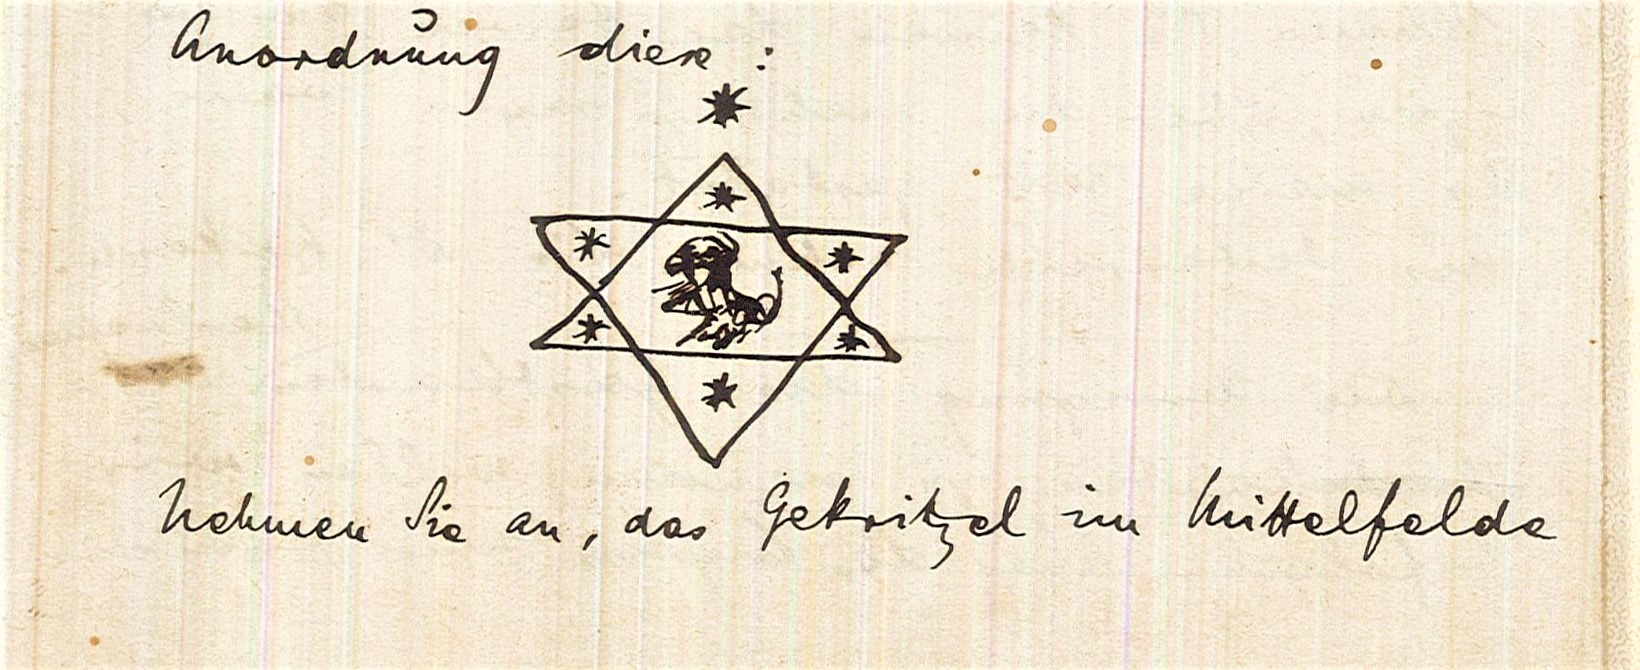 Anordnung diese :
Nehmen Sie an, das Gekritzel im Mittelfelde